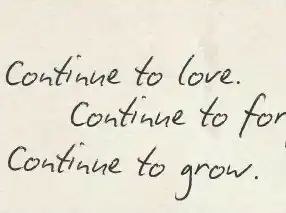 Continue to love.
Continue to for
Continue to grow.